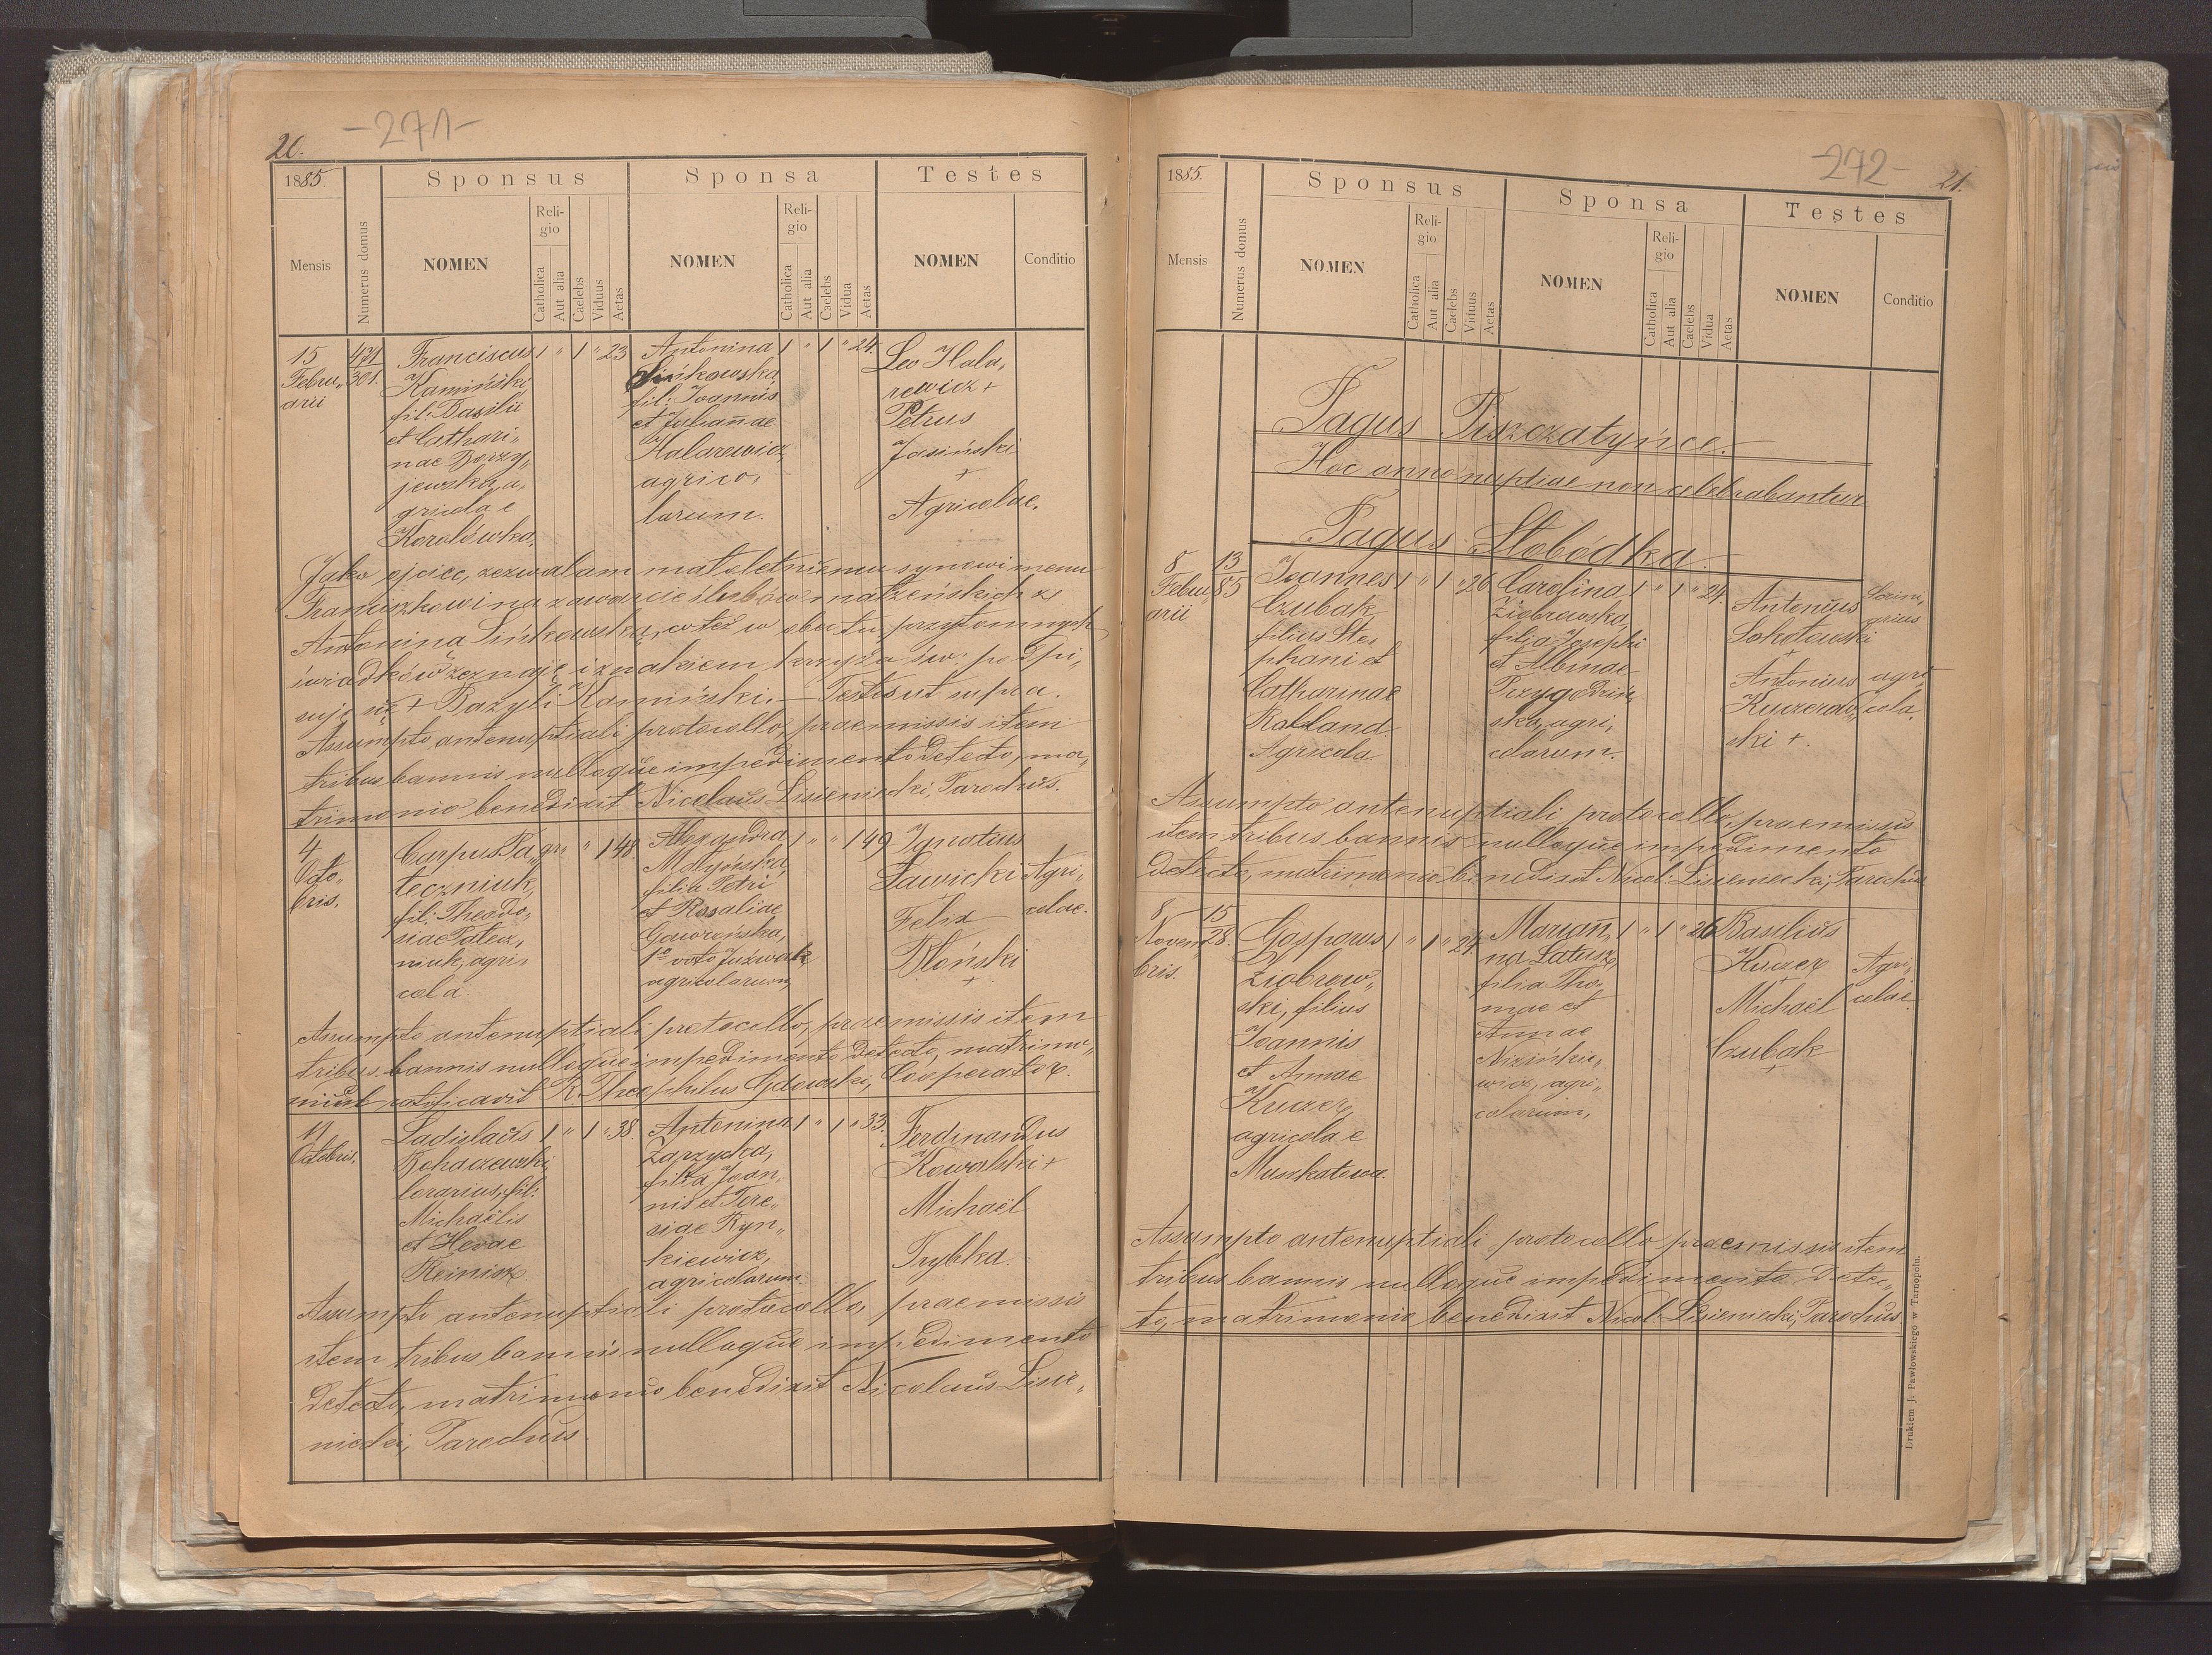 20.
-271-
1885.
Sponsus
Sponsa
Testes
Mensis
Numerus domus
NOMEN
Religio
Catholica
Aut alia
Caelebs
Viduus
Aetas
NOMEN
Religio
Catholica
Aut alia
Caelebs
Vidua
Aetas
NOMEN
Conditio
15 Februarii
471
301.
Franciscus 1 " 1 " 23
Kamiński,
fil: Basilii
et Cathari„
nae Borzy„
jewska, a„
gricola e
Korolówka.
Antonina 1 " 1 " 24.
Sinkowska,
fil: Joannis
et Julianae
Halarewicz,
agrico„
larum.
Leo Hala„
rewicz +
Petrus
Jasiński
+
Agricolae.
Jako ojciec, zezwalam małoletniemu synowi memu
Franciszkowi na zawarcie ślubów małżeńskich z
Antonina Sińkowską, co też w obec tu przytomnych
świadków zeznaję i znakiem krzyża św: podpi„
suję się + Bazyli Kamiński. — Testes ut supra.
Assumpto antenuptiali protocollo, praemissis item
tribus bannis nulloque impedimento detecto, ma„
trimonio benedixit Nicolaus Lisieniecki, Parochus.
4
Octo„
bris.
Carpus Pa„ gr: " 1 48.
teczniuk,
fil: Theodo„
siae Patecz„
niuk, agri„
cola.
Alexandra 1 " " 1 49
Molyńska,
filia Petri
et Rosaliae
Gawrońska,
1º voto Juzwak,
agricolarum
Ignatius
Sawicki
Felix
Błoński
+
Agri„
colae.
Assumpto antenuptiali protocollo, praemissis item
tribus bannis nulloque impedimento detecto, matrimo„
nium ratificavit R. Theophilus Gdowski, Cooperator.
11
Octobris.
Ladislaus 1 " 1 " 38.
Rohaczewski,
lorarius, fil:
Michaëlis
et Hevae
Reinisz.
Antonina 1 " 1 " 33.
Zarzycka,
filia Joan„
nis et Tere„
siae Ryn„
kiewicz,
agricolarum.
Ferdinandus
Kowalski +
Michaël
Trybka.
Assumpto antenuptiali protocollo, praemissis
item tribus bannis nulloque impedimento
detecto, matrimonio benedixit Nicolaus Lisie„
niecki, Parochus.
-272-
21.
1885.
Sponsus
Sponsa
Testes
Mensis
Numerus domus
NOMEN
Religio
Catholica
Aut alia
Caelebs
Viduus
Aetas
NOMEN
Religio
Catholica
Aut alia
Caelebs
Vidua
Aetas
NOMEN
Conditio
Pagus Piszczatyńce.
Hoc anno nuptiae non celebrabantur
Pagus Słobódka.
8
Febru„
arii
13
85
Joannes 1 " 1 " 26
Czubak,
filius Ste„
phani et
Catharinae
Rolland.
Agricola.
Carolina 1 " 1 " 24.
Ziobrowska,
filia Josephi
et Albinae
Przygodzin„
ska, agri„
colarum.
Antonius
Sokołowski
+
Antonius
Kuczerow„
ski +.
agri„
cola.
Assumpto antenuptiali protocollo, praemissis
item tribus bannis nulloque impedimento
detecto, matrimonio benedixit Nicol: Lisieniecki, Parochus
8
Novem„
bris.
15
28.
Gasparus 1 " 1 " 24.
Ziobrow„
ski, filius
Joannis
et Annae
Kuczer,
agricola e
Muszkatowa.
Marian„ 1 " 1 " 26
na Latusz,
filia Tho„
mae et
Annae
Nizinkie„
wicz, agri„
colarum,
Basilius
Kuczer
+
Michaël
Czubak
+
Agri„
colae.
Assumpto antenuptiali protocollo praemissis item
tribus bannis nulloque impedimento detec„
to, matrimonio benedixit Nicol: Lisieniecki, Parochus
Drukiem J. Pawłowskiego w Tarnopolu.